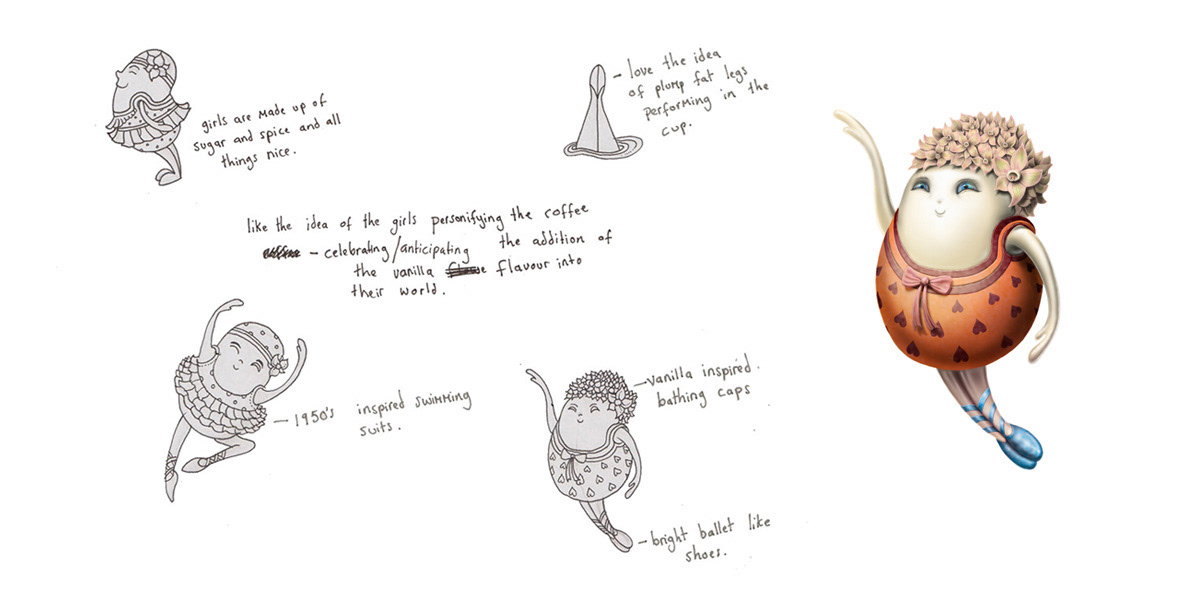 girls are made up of
sugar and spice and all
things nice.
– love the idea
of plump fat legs
performing in the
cup.
like the idea of the girls personifying the coffee
– celebrating/anticipating the addition of
the vanilla flavour into
their world.
– 1950's inspired swimming
suits.
– vanilla inspired.
bathing caps
– bright ballet like
shoes.